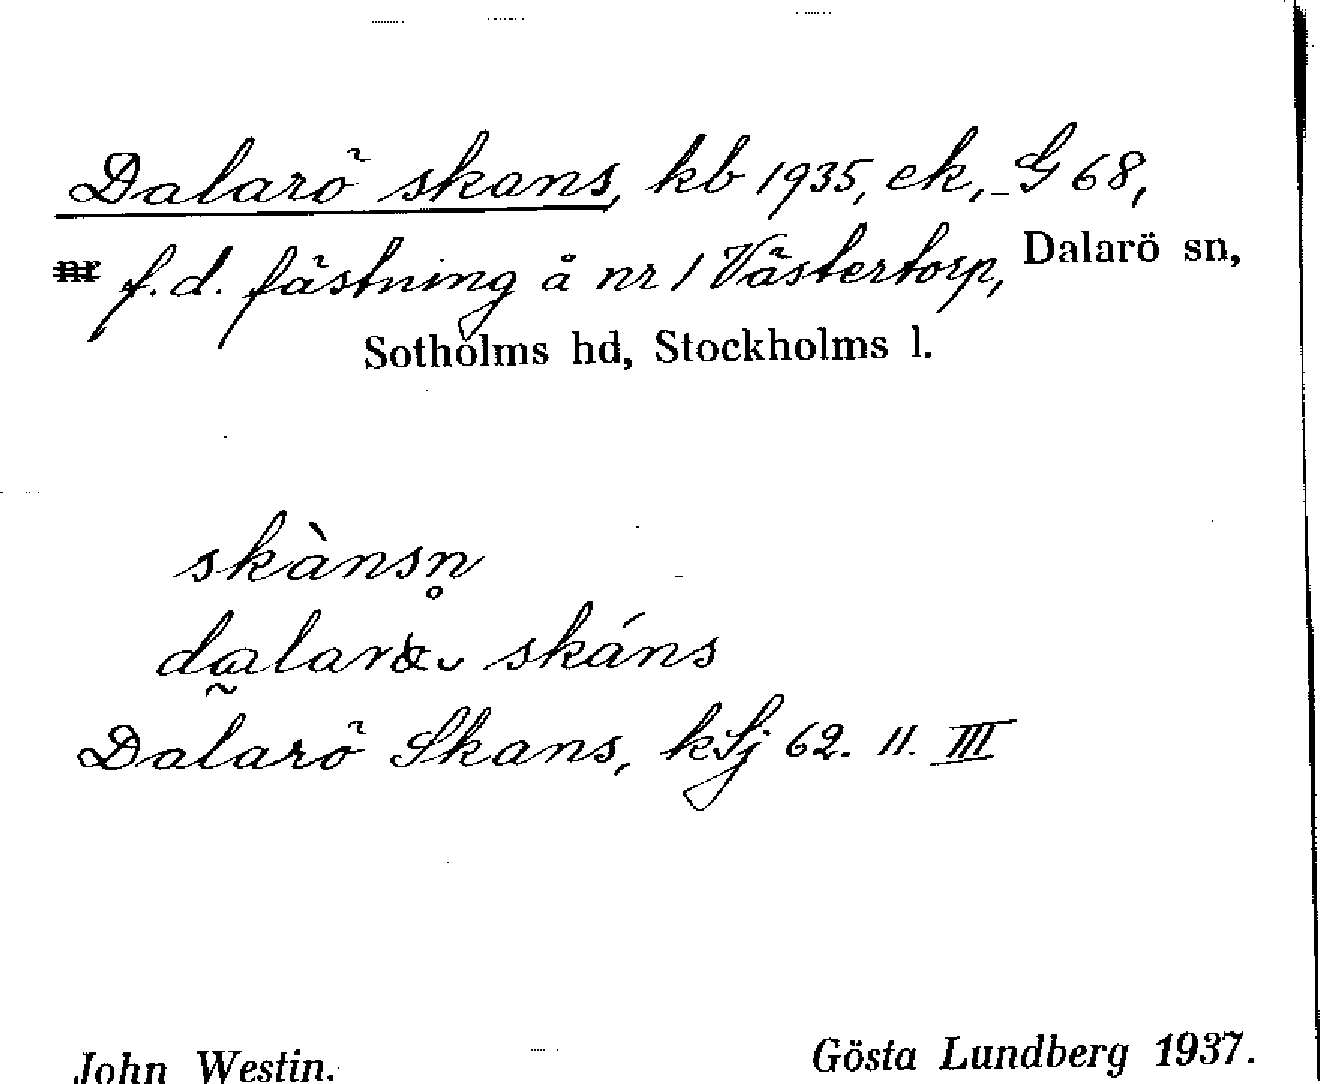 Dalarö skans, kb 1935, ek, G 68,
nr f.d. fästning å nr 1 Västertorp, Dalarö sn,
Sotholms hd, Stockholms l.
skànsn̥
skáns
Dalarö Skans, kSj 62. 11. III
John Westin. Gösta Lundberg 1937.